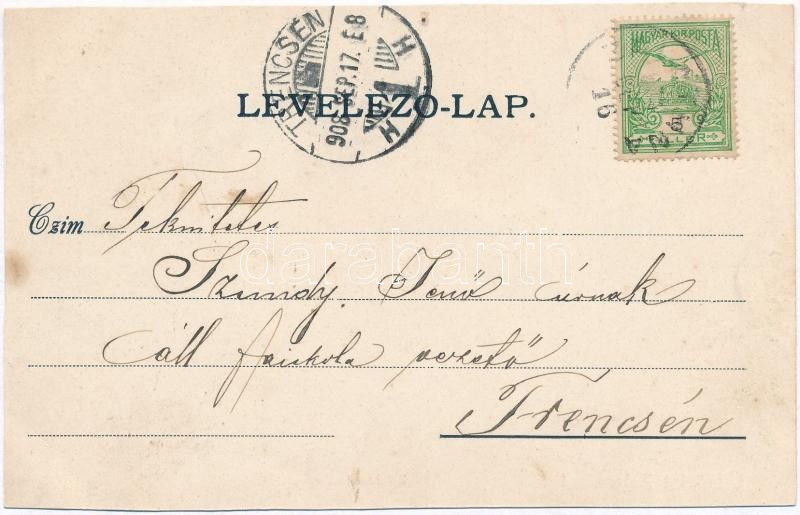 TRENCSÉN
908 SEP. 17. E8
H
H
MAGYAR KIR. POSTA
5
16
LEVELEZŐ-LAP.
Czím Tekintetes
darabanth
Szendy Jenő úrnak
áll faiskola vezető
Trencsén